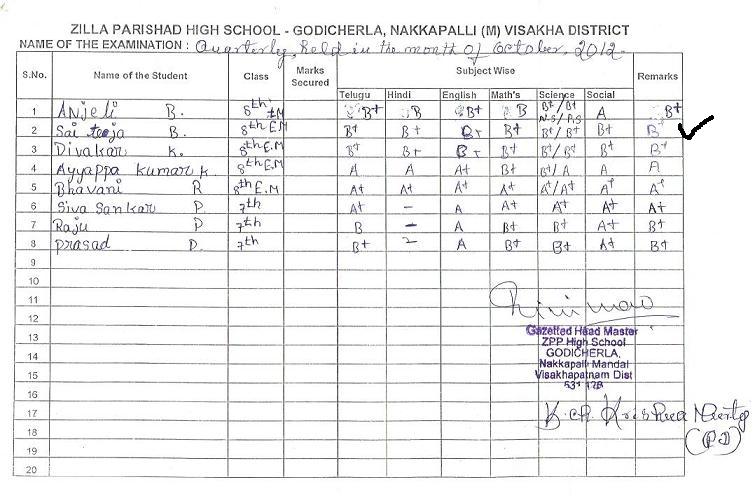 ZILLA PARISHAD HIGH SCHOOL - GODICHERLA, NAKKAPALLI (M) VISAKHA DISTRICT
NAME OF THE EXAMINATION : Quarterly, held in the month of October, 2012.
S.No. Name of the Student Class Marks Secured Subject Wise Remarks
Telugu Hindi English Math's Science Social
1 Anjeli B. 8th EM B+ B B+ B B+/B+ N.S/P.S A B+
2 Sai teja B. 8th EM B+ B+ B+ B+ B+/B+ B+ B+
3 Divakar K. 8th E.M B+ B+ B+ B+ B+/B+ B+ B+
4 Ayyappa Kumar K. 8th E.M A A A+ B+ B+/A A A
5 Bhavani R 8th E.M A+ A+ A+ A+ A+/A+ A+ A+
6 Siva Sankar P. 7th A+ - A A+ A+ A+ A+
7 Raju P 7th B - A B+ B+ A+ B+
8 Prasad D. 7th B+ - A B+ B+ A+ B+
9
10
11
12
13
14
15
16
17
18
19
20
Gazetted Head Master
ZPP High School
GODICHERLA,
Nakkapalli Mandal
Visakhapatnam Dist
531 126
K.ch. Krishna
(PD)